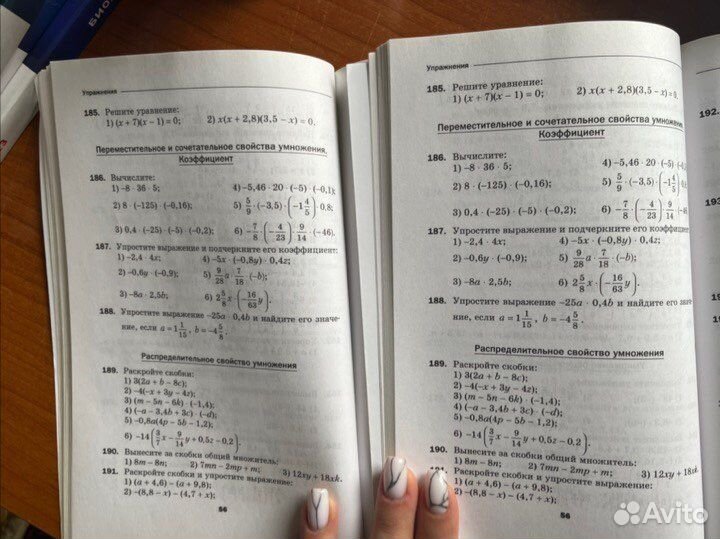 БИО
Упражнения
185. Решите уравнение:
1) (x + 7)(x − 1) = 0; 2) x(x + 2,8)(3,5 − x) = 0.
Переместительное и сочетательное свойства умножения.
Коэффициент
186. Вычислите:
1) −8 · 36 · 5; 4) −5,46 · 20 · (−5) · (−0,1);
2) 8 · (−125) · (−0,16); 5) 5/9 · (−3,5) · (−1 4/5) · 0,8;
3) 0,4 · (−25) · (−5) · (−0,2); 6) −7/8 · (−4/23) · 9/14 · (−46).
187. Упростите выражение и подчеркните его коэффициент:
1) −2,4 · 4x; 4) −5x · (−0,8y) · 0,4z;
2) −0,6y · (−0,9); 5) 9/28 a · 7/18 · (−b);
3) −8a · 2,5b; 6) 2 5/8 x · (−16/63 y).
188. Упростите выражение −25a · 0,4b и найдите его значе-
ние, если a = 1 1/15, b = −4 5/8.
Распределительное свойство умножения
189. Раскройте скобки:
1) 3(2a + b − 8c);
2) −4(−x + 3y − 4z);
3) (m − 5n − 6k) · (−1,4);
4) (−a − 3,4b + 3c) · (−d);
5) −0,8a(4p − 5b − 1,2);
6) −14(3/7 x − 9/14 y + 0,5z − 0,2).
190. Вынесите за скобки общий множитель:
1) 8m − 8n; 2) 7mn − 2mp + m; 3) 12xy + 18xk.
191. Раскройте скобки и упростите выражение:
1) (a + 4,6) − (a + 9,8);
2) −(8,8 − x) − (4,7 + x);
56
Упражнения
185. Решите уравнение:
1) (x + 7)(x − 1) = 0; 2) x(x + 2,8)(3,5 − x) = 0.
Переместительное и сочетательное свойства умножения
Коэффициент
186. Вычислите:
1) −8 · 36 · 5; 4) −5,46 · 20 · (−5) ·
2) 8 · (−125) · (−0,16); 5) 5/9 · (−3,5) · (−1 4/5) · 0,8;
3) 0,4 · (−25) · (−5) · (−0,2); 6) −7/8 · (−4/23) · 9/14 · (−46)
187. Упростите выражение и подчеркните его коэффициент:
1) −2,4 · 4x; 4) −5x · (−0,8y) · 0,4z;
2) −0,6y · (−0,9); 5) 9/28 a · 7/18 · (−b);
3) −8a · 2,5b; 6) 2 5/8 x · (−16/63 y).
188. Упростите выражение −25a · 0,4b и найдите его значе-
ние, если a = 1 1/15, b = −4 5/8.
Распределительное свойство умножения
189. Раскройте скобки:
1) 3(2a + b − 8c);
2) −4(−x + 3y − 4z);
3) (m − 5n − 6k) · (−1,4);
4) (−a − 3,4b + 3c) · (−d);
5) −0,8a(4p − 5b − 1,2);
6) −14(3/7 x − 9/14 y + 0,5z − 0,2).
190. Вынесите за скобки общий множитель:
1) 8m − 8n; 2) 7mn − 2mp + m; 3) 12xy + 18xk
Раскройте скобки и упростите выражение:
1) (a + 4,6) − (a + 9,8);
2) −(8,8 − x) − (4,7 + x);
56
192.
193
Avito